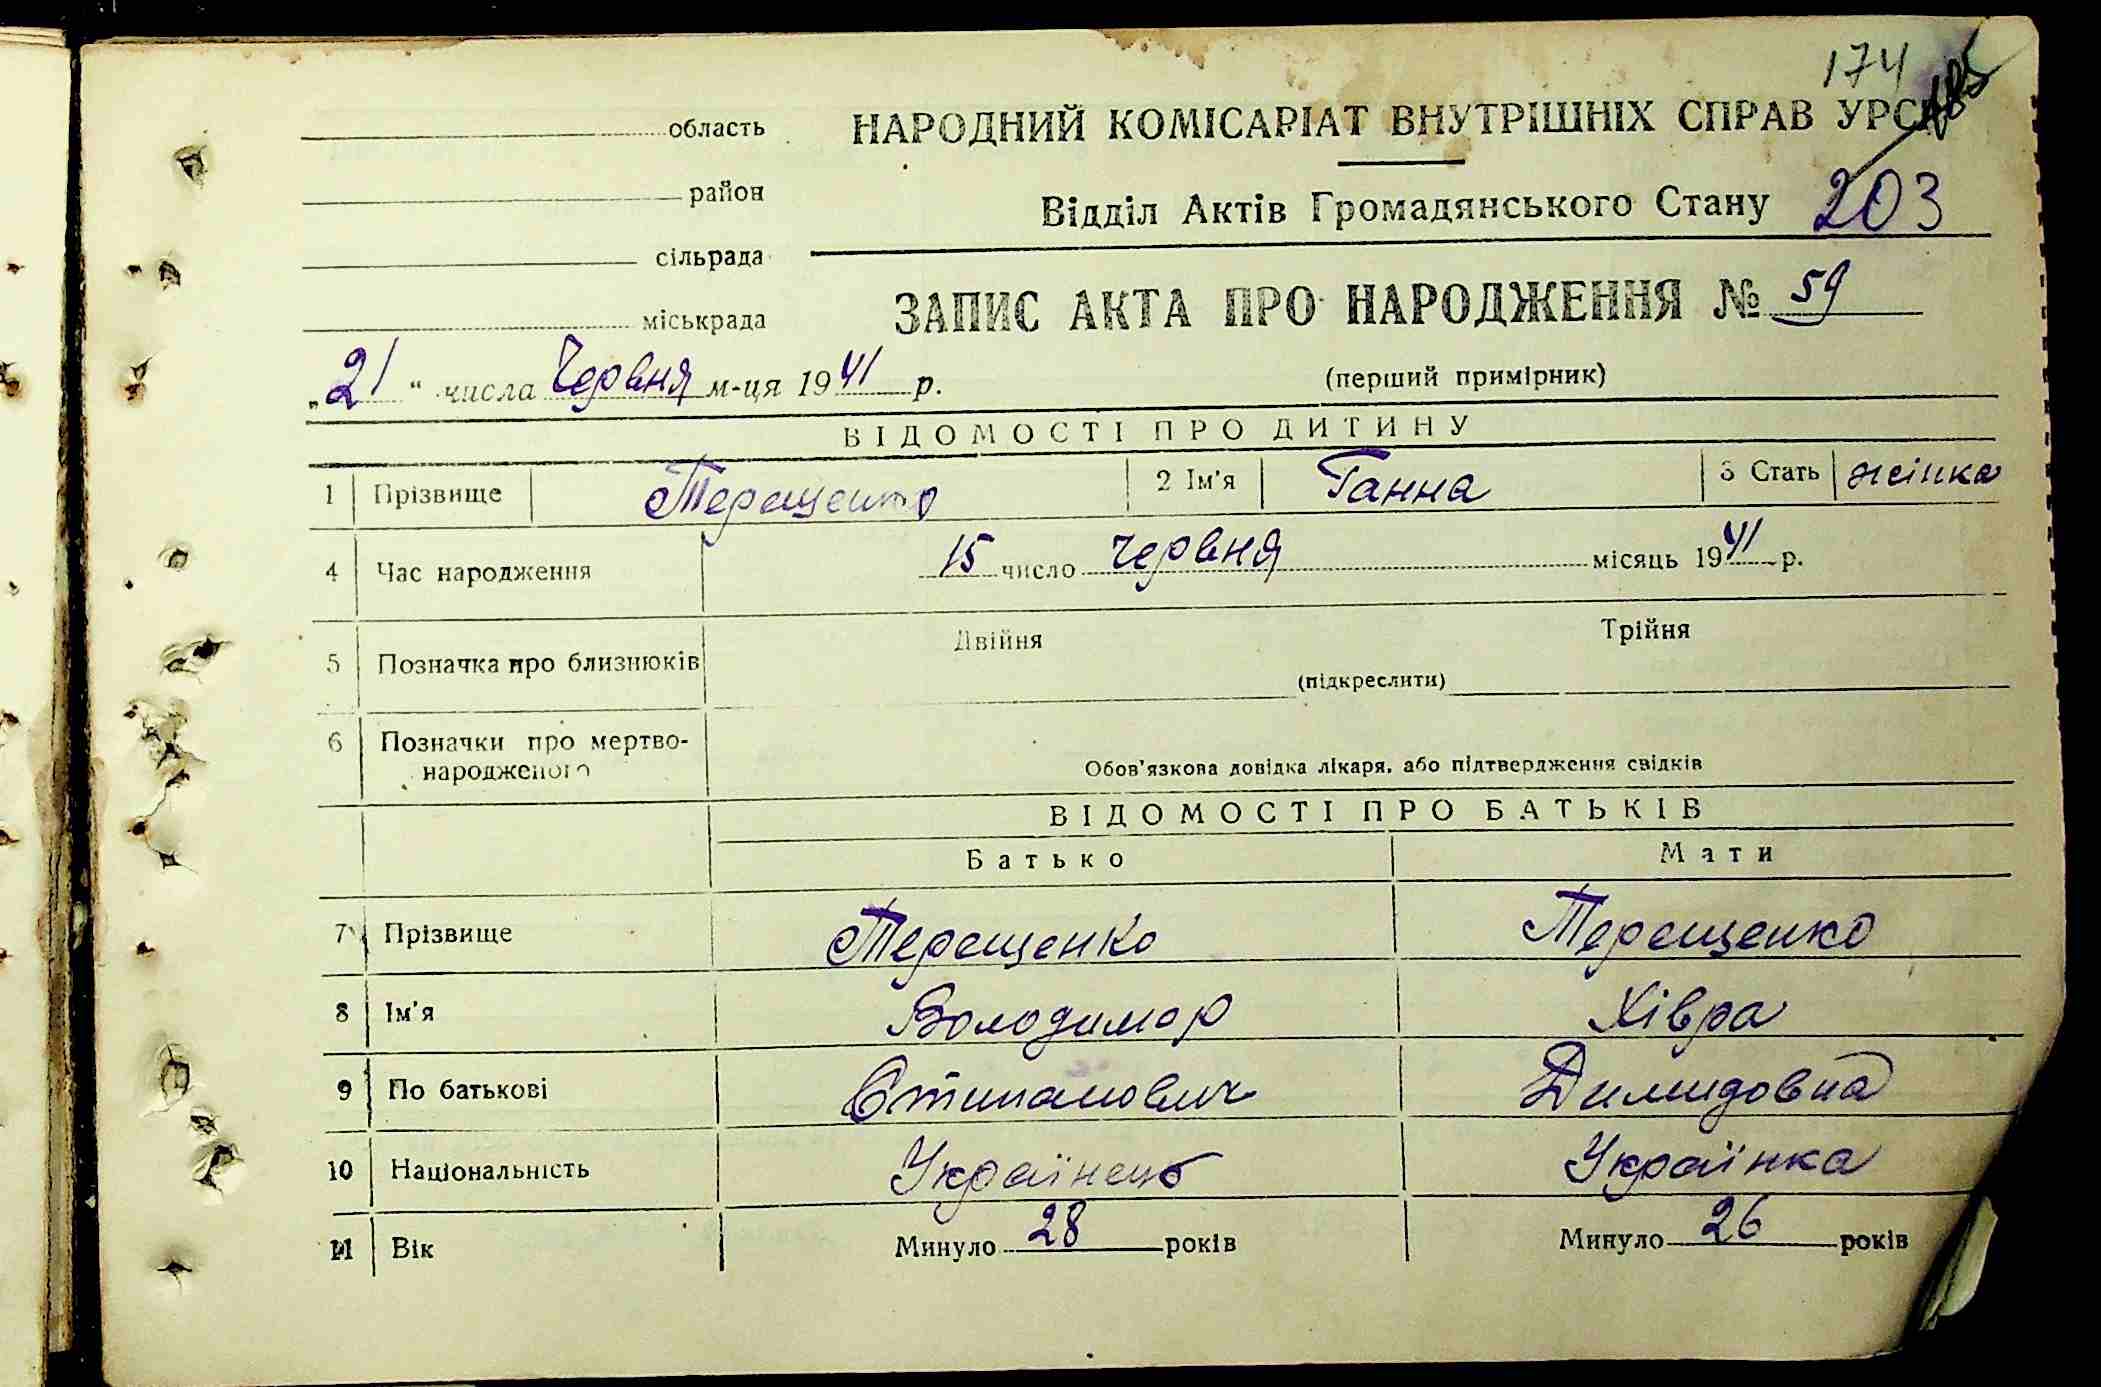 174
185
область
НАРОДНИЙ КОМІСАРІАТ ВНУТРІШНІХ СПРАВ УРСР
район
Відділ Актів Громадянського Стану 203
сільрада
міськрада
ЗАПИС АКТА ПРО НАРОДЖЕННЯ № 59
„21“ числа Червня м-ця 1941 р.
(перший примірник)
ВІДОМОСТІ ПРО ДИТИНУ
1 Прізвище Терещенко 2 Ім'я Ганна 3 Стать жінка
4 Час народження 15 число червня місяць 1941 р.
5 Позначка про близнюків Двійня Трійня
(підкреслити)
6 Позначки про мертво-
народженого Обов'язкова довідка лікаря, або підтвердження свідків
ВІДОМОСТІ ПРО БАТЬКІВ
Батько Мати
7 Прізвище Терещенко Терещенко
8 Ім'я Володимор Хівра
9 По батькові Стипанович Димидовна
10 Національність Українець Українка
11 Вік Минуло 28 років Минуло 26 років